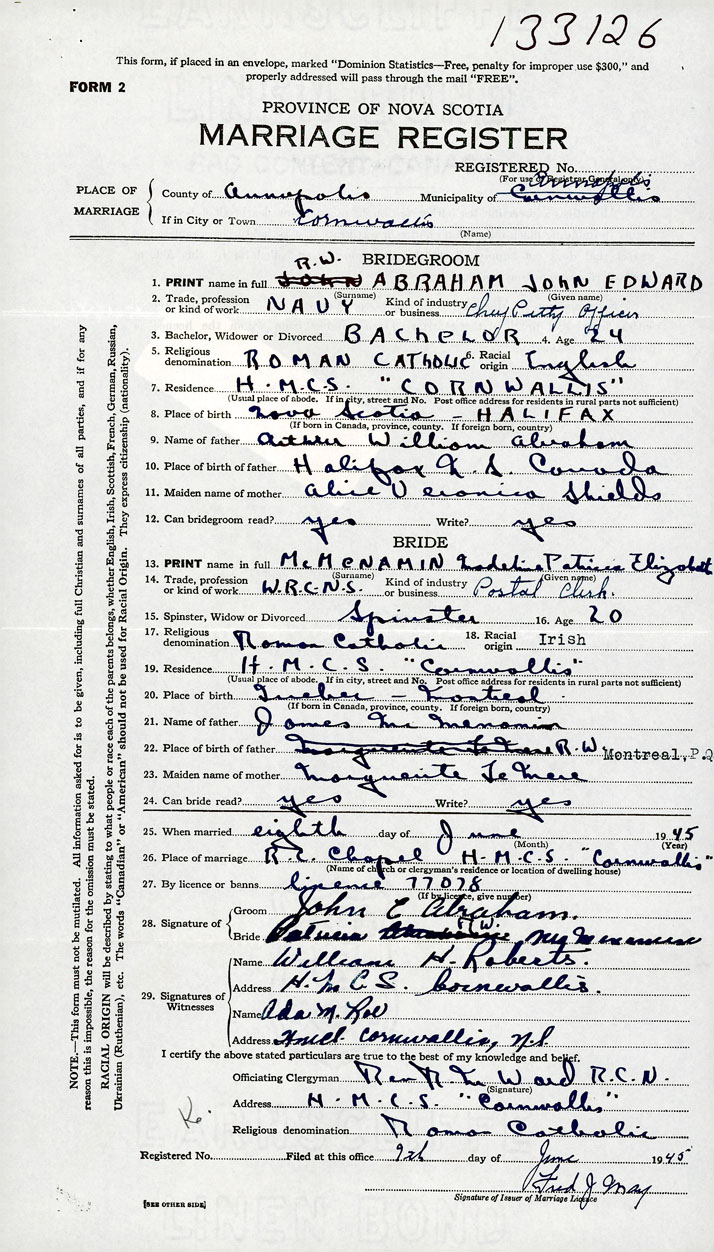 133126
This form, if placed in an envelope, marked "Dominion Statistics—Free, penalty for improper use $300," and
properly addressed will pass through the mail "FREE".
FORM 2
PROVINCE OF NOVA SCOTIA
MARRIAGE REGISTER
REGISTERED No.
(For use of Registrar General only)
PLACE OF MARRIAGE
County of Annapolis Municipality of Cornwallis Annapolis
If in City or Town Cornwallis
(Name)
BRIDEGROOM
R.W.
1. PRINT name in full JOHN ABRAHAM JOHN EDWARD
(Surname) (Given name)
2. Trade, profession or kind of work NAVY Kind of industry or business Chief Petty Officer
3. Bachelor, Widower or Divorced BACHELOR 4. Age 24
5. Religious denomination ROMAN CATHOLIC 6. Racial origin English
7. Residence H.M.C.S. "CORNWALLIS"
(Usual place of abode. If in city, street and No. Post office address for residents in rural parts not sufficient)
8. Place of birth Nova Scotia - HALIFAX
(If born in Canada, province, county. If foreign born, country)
9. Name of father Arthur William Abraham
10. Place of birth of father Halifax N.S. Canada
11. Maiden name of mother Alice Veronica Shields
12. Can bridegroom read? yes Write? yes
BRIDE
13. PRINT name in full McMENAMIN Madeline Patricia Elizabeth
(Surname) (Given name)
14. Trade, profession or kind of work W.R.C.N.S. Kind of industry or business Postal Clerk.
15. Spinster, Widow or Divorced Spinster 16. Age 20
17. Religious denomination Roman Catholic 18. Racial origin Irish
19. Residence H.M.C.S. "Cornwallis"
(Usual place of abode. If in city, street and No. Post office address for residents in rural parts not sufficient)
20. Place of birth Quebec - Montreal.
(If born in Canada, province, county. If foreign born, country)
21. Name of father James Mc Menamin
22. Place of birth of father R.W. Montreal, P.Q
23. Maiden name of mother Marguerite
24. Can bride read? yes Write? yes
25. When married eighth day of June 1945
(Month) (Year)
26. Place of marriage R.C. Chapel H.M.C.S. "Cornwallis"
(Name of church or clergyman's residence or location of dwelling house)
27. By licence or banns licence 77078
(If by licence, give number)
28. Signature of
Groom John E Abraham.
Bride Patricia R.W. McMenamin
29. Signatures of Witnesses
Name William H. Roberts.
Address H.M.C.S. Cornwallis.
Name Ada M.
Address HMCS Cornwallis, N.S.
I certify the above stated particulars are true to the best of my knowledge and belief.
Officiating Clergyman Rev Ward R.C.N.
(Signature)
Address H.M.C.S. "Cornwallis"
Religious denomination Roman Catholic
Registered No. Filed at this office 9th day of June 1945
Fred J. May
Signature of Issuer of Marriage Licence
[SEE OTHER SIDE]
NOTE.—This form must not be mutilated. All information asked for is to be given, including full Christian and surnames of all parties, and if for any
reason this is impossible, the reason for the omission must be stated.
RACIAL ORIGIN will be described by stating to what people or race each of the parents belongs, whether English, Irish, Scottish, French, German, Russian,
Ukrainian (Ruthenian), etc. The words "Canadian" or "American" should not be used for Racial Origin. They express citizenship (nationality).